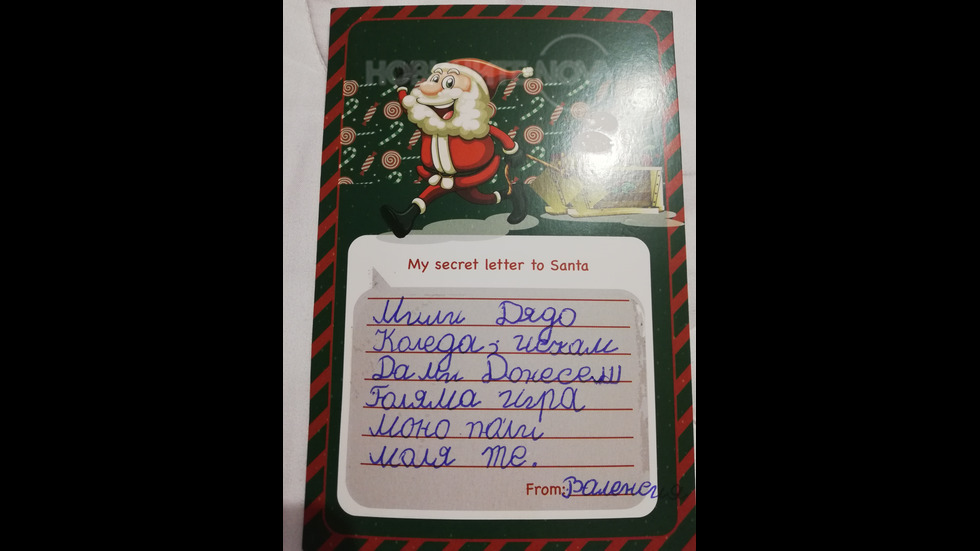 НОВИНИТЕ NOVA
My secret letter to Santa
Мили Дядо
Коледа, искам
Да ми Донесеш
Голяма игра
моно поли
моля те.
From: